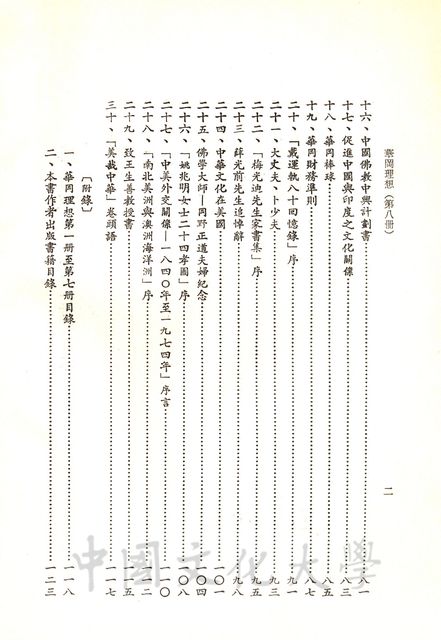 華岡理想（第八冊）
二
十六、中國佛教中興計劃書……八一
十七、促進中國與印度之文化關係……八三
十八、華岡棒球……八五
十九、華岡財務準則……八七
二十、「戴運軌八十回憶錄」序……九一
二十一、大丈夫、卜少夫……九三
二十二、「梅光迪先生家書集」序……九五
二十三、薛光前先生追悼辭……九八
二十四、中華文化在美國……一〇一
二十五、佛學大師—岡野正道夫婦紀念……一〇四
二十六、「姚兆明女士二十四孝圖」序……一〇八
二十七、「中美外交關係—一八四〇年至一九七四年」序言……一一〇
二十八、「南北美洲與澳洲海洋洲」序……一一二
二十九、致王生善教授書……一一五
三十、「美哉中華」卷頭語……一一七
〔附錄〕
一、華岡理想第一冊至第七冊目錄……一一八
二、本書作者出版書籍目錄……一二三
中國文化大學